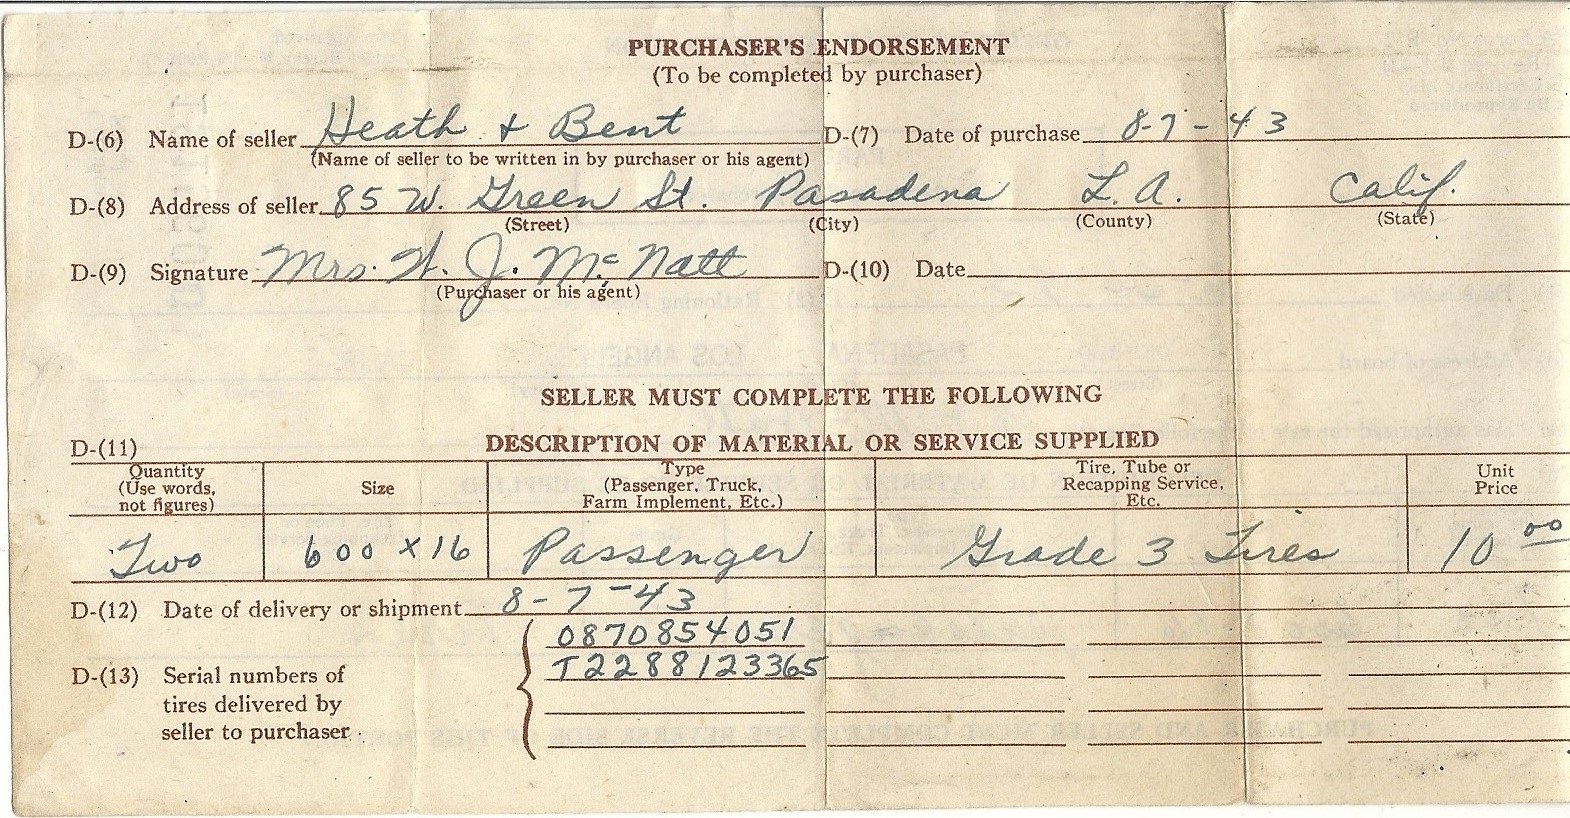 PURCHASER'S ENDORSEMENT
(To be completed by purchaser)
D-(6) Name of seller Heath & Bent D-(7) Date of purchase 8-7-43
(Name of seller to be written in by purchaser or his agent)
D-(8) Address of seller 85 W. Green St. Pasadena L.A. Calif.
(Street) (City) (County) (State)
D-(9) Signature Mrs. W. J. McNatt D-(10) Date
(Purchaser or his agent)
SELLER MUST COMPLETE THE FOLLOWING
D-(11) DESCRIPTION OF MATERIAL OR SERVICE SUPPLIED
Quantity (Use words, not figures) Size Type (Passenger, Truck, Farm Implement, Etc.) Tire, Tube or Recapping Service, Etc. Unit Price
Two 600 x 16 Passenger Grade 3 Tires 10 00
D-(12) Date of delivery or shipment 8-7-43
0870854051
D-(13) Serial numbers of T2288123365
tires delivered by
seller to purchaser